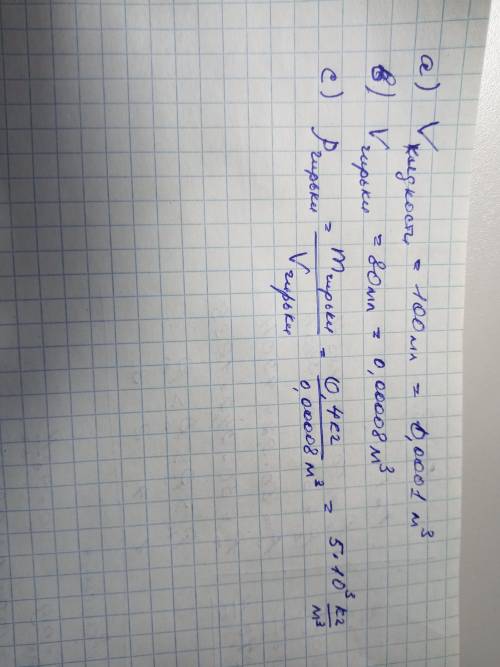 a) V жидкости = 100 мл = 0,0001 м³
b) V гирьки = 80 мл = 0,00008 м³
c) ρ гирьки = m гирьки / V гирьки = 0,4 кг / 0,00008 м³ = 5·10³ кг/м³